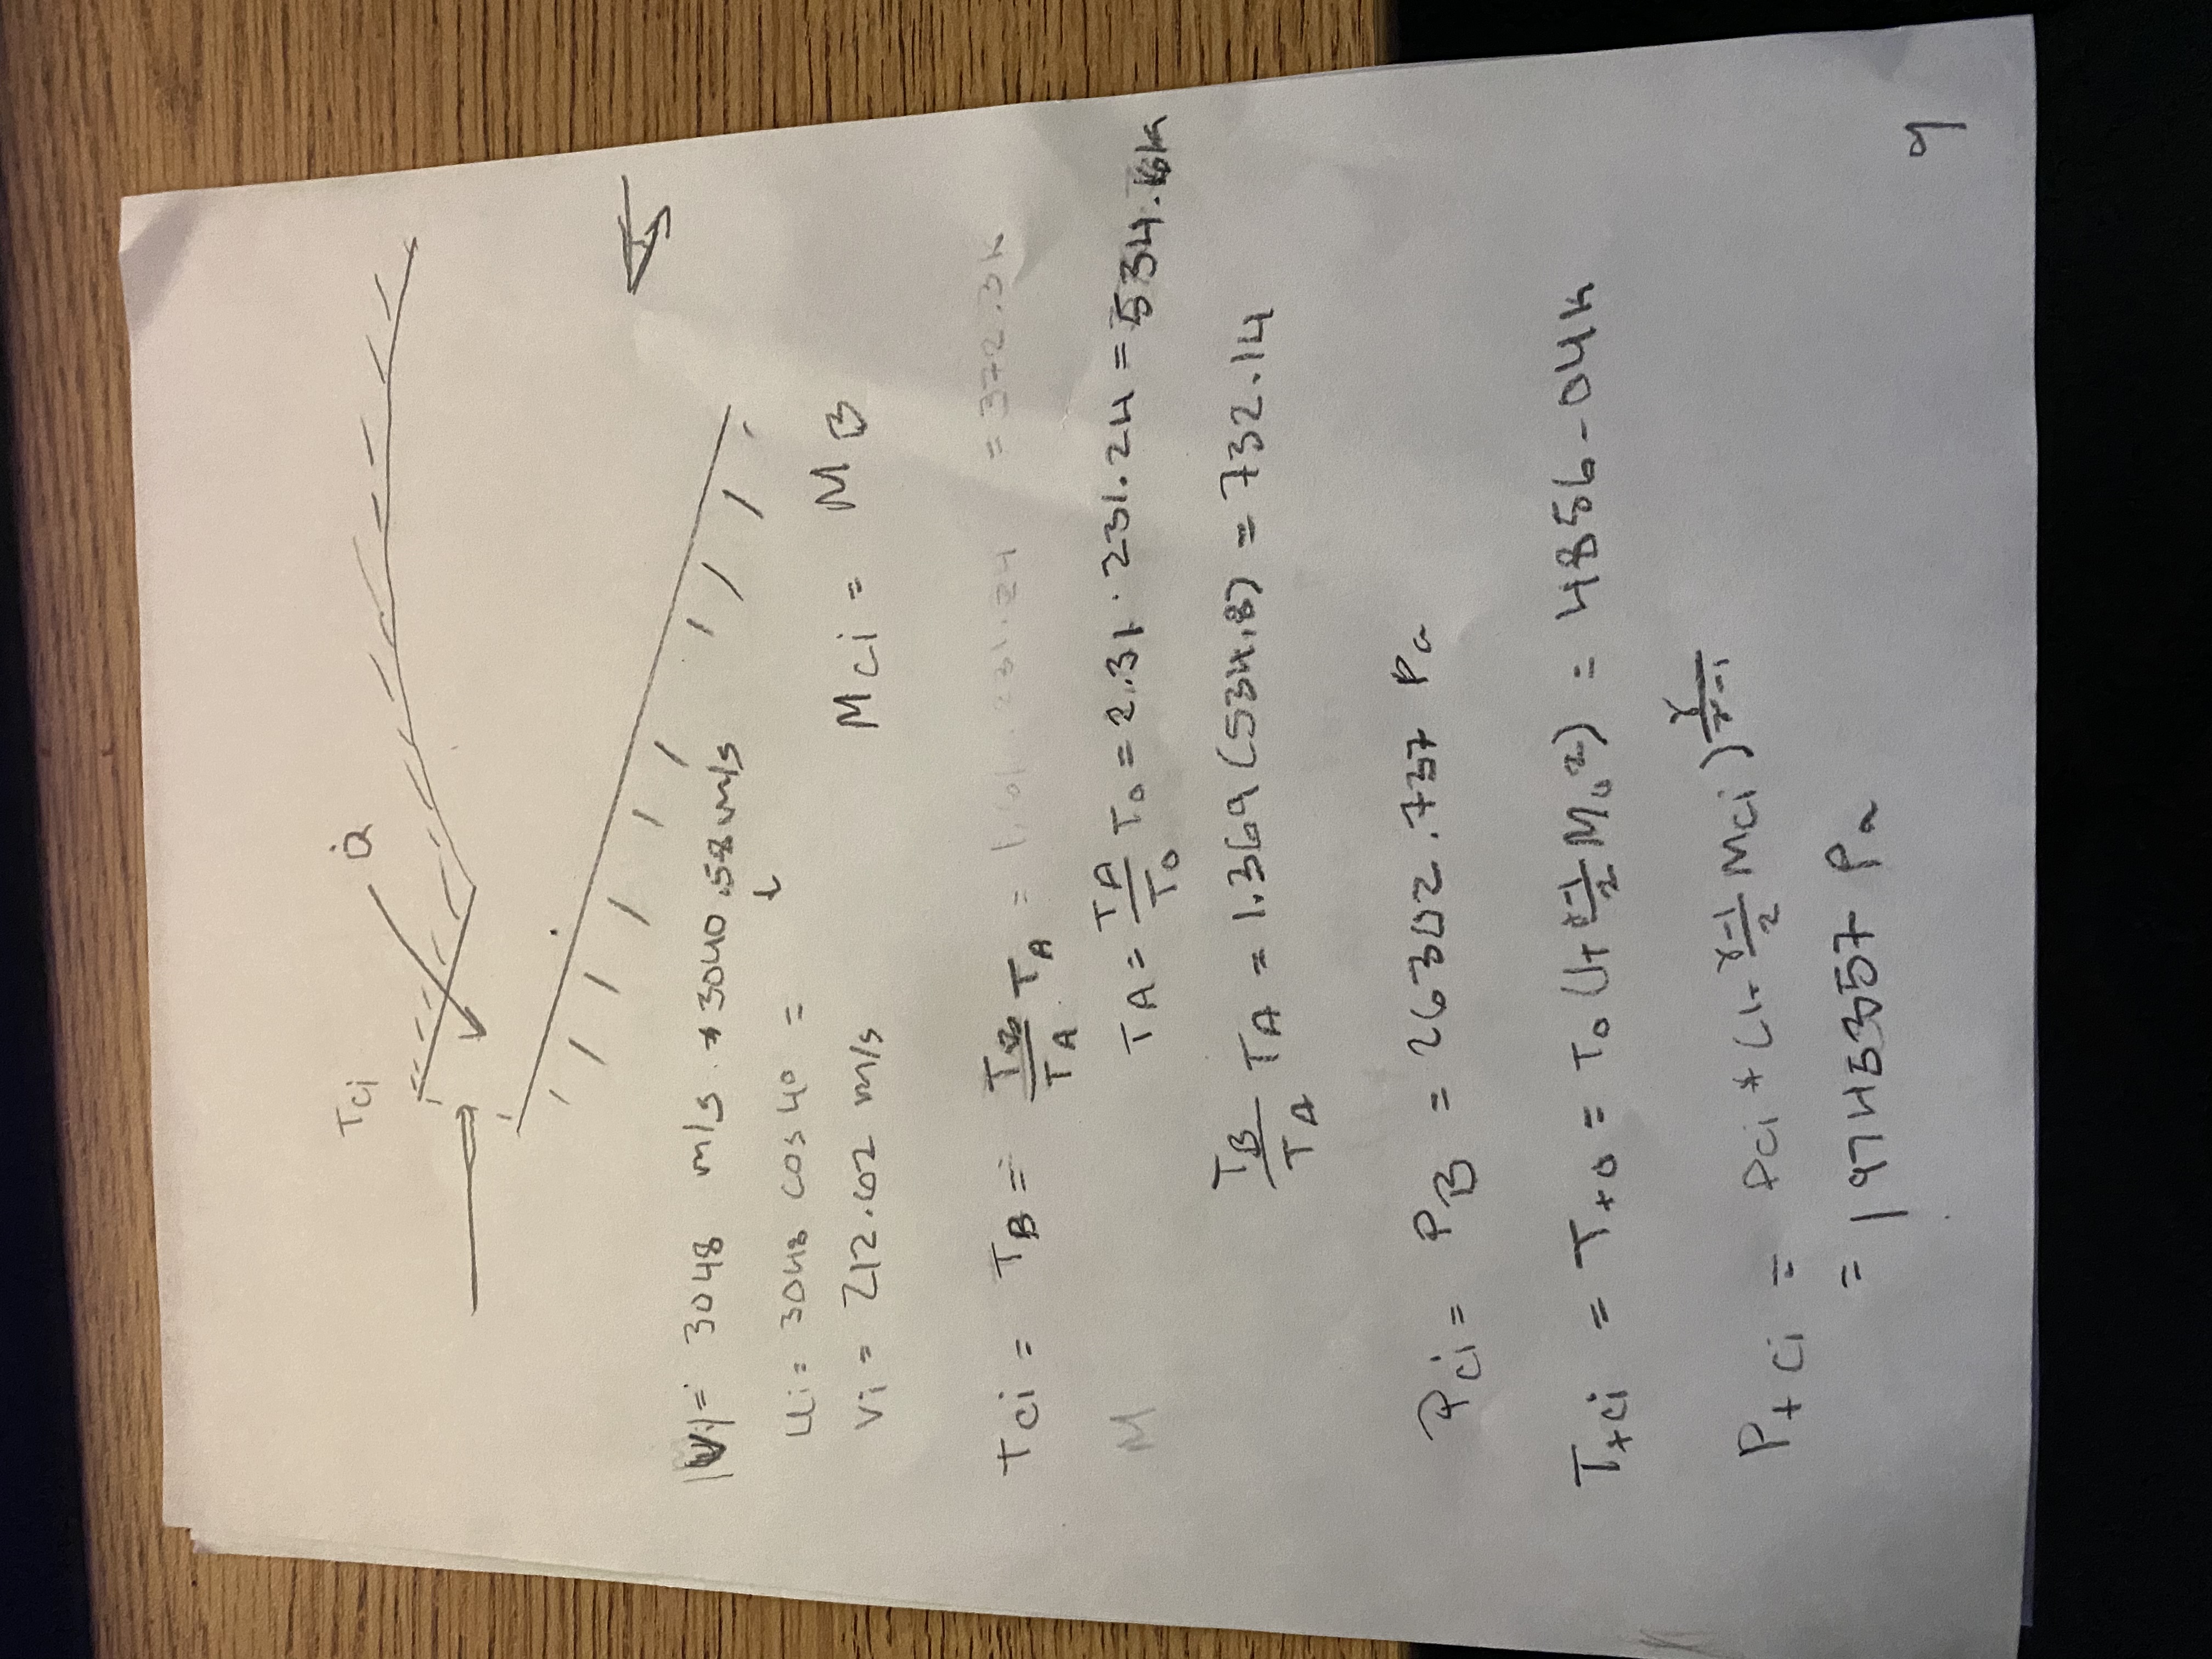 Tci Q̇
|Vi| = 3048 m/s → 3040.58 m/s
ui = 3048 cos 4° = ↓
vi = 212.62 m/s
Mci = MB
Tci = TB = TB/TA TA = 231.24 = 372.3K
M
TA = TA/T0 T0 = 2.31 · 231.24 = 534.
TB/TA TA = 1.369 (534.8) = 732.14
Pci = PB = 26302.737 Pa
Ttci = Tt0 = T0 (1+ γ-1/2 M0²) = 4856.04K
Ptci = Pci * (1+ γ-1/2 Mci)^γ/γ-1
= 19745357 Pa
9